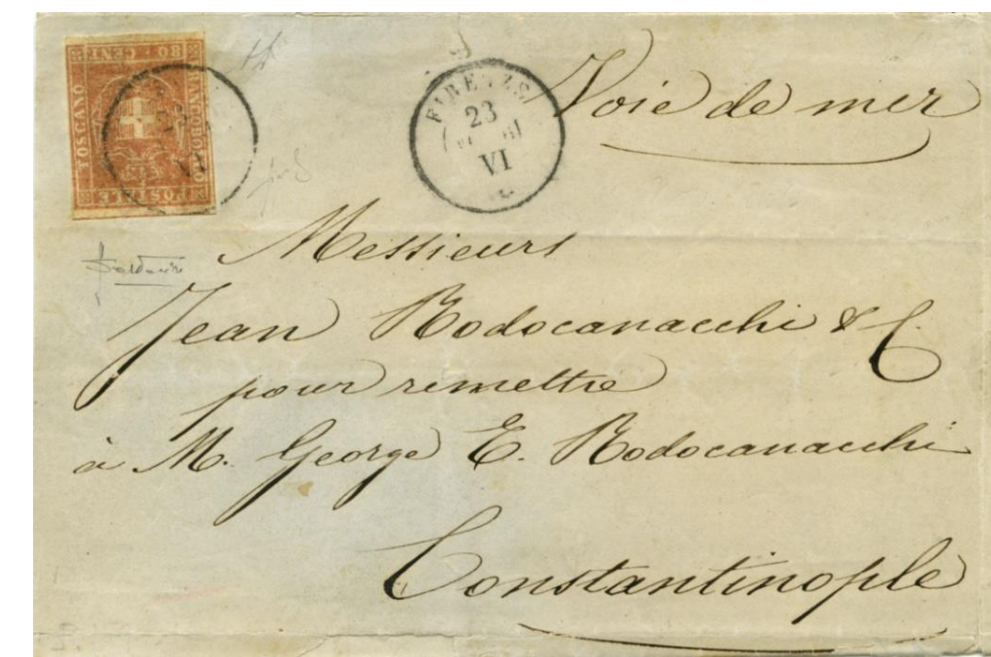 80 CENT
FRANCOBOLLO
POSTALE
TOSCANO
23
VI
FIRENZE
23
61
VI
Voie de mer
Messieurs
Jean Rodocanacchi & C.
pour remettre
à M. George E. Rodocanacchi
Constantinople